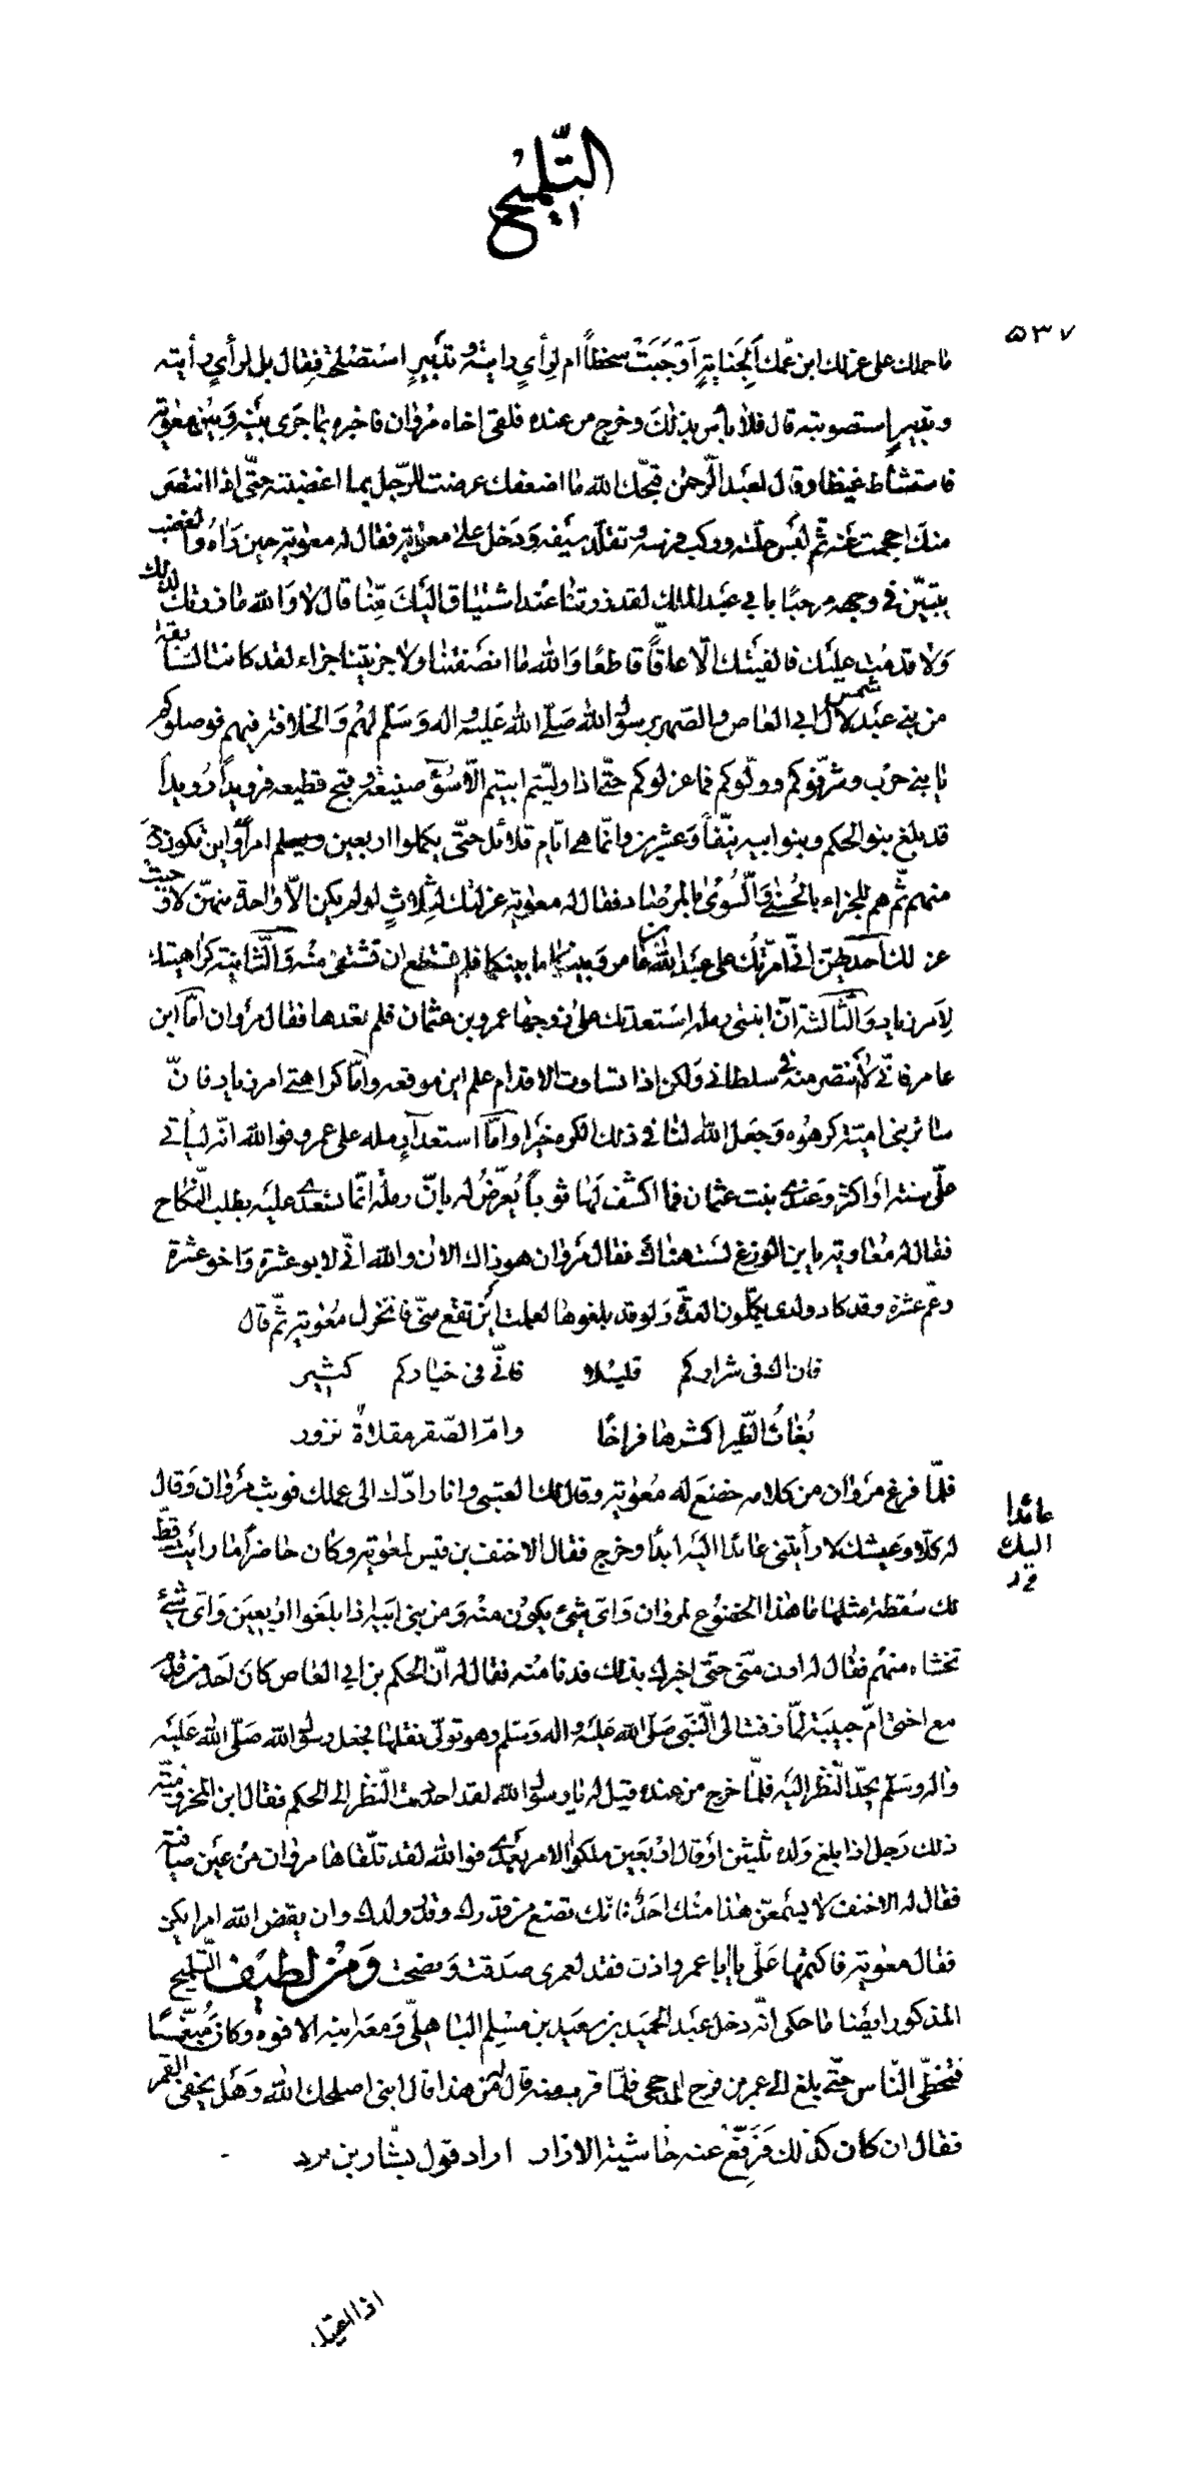 التّلميح
٥٣٧
ما حملك على عزلك ابن عمّك ألِجنايةٍ أوْجَبَتْ سخطاً ام لِرأيٍ رايتَه وتدبيرٍ استصْلحته فقال بل لرأيٍ رأيته
وتدبيرٍ استصوبته قال فلا بأس بذلكَ وخرج من عنده فلقى اخاه مرْوان فاخبره بما جَرى بيْنه وَبيْن معٰوية
فاستشاط غيظا وقال لعبْد الرّحمٰن قبّحك الله ما اضعفك عرضت للرّجل بما اغضبته حتّى اذا انتصَر
منكَ احجمت عنْه ثمّ لبسَ حلّته وركب فرسه وتقلّد سيْفه وَدَخل علىٰ معٰوية فقال له معٰوية حين رَاٰهُ والغضب
يتبيّن فى وجهه مرحبًا بابى عبْد الملك لقد زرتنا عند اشتياق اليْكَ مِنّا قال لا وَالله ما زرتك لذلك
وَلا قدمْت عليْك فالفيْتك الّا عاقًّا قاطعًا وَالله ما انصَفتنا ولا جزيتنا جزاء لقد كانت السّابقة
من بنى عبْد شمس لآل ابى العاص والصهر برسول الله صَلّى الله عَليْه واله وَسَلّم لهُم وَالخلافة فيهم فوصلوكم
يا بنى حرْب وشرّفوكم وولّوكم فما عزلوكم حتّى اذا ولّيتم ابيتم الّا سُوٓء صنيعة وقبح قطيعه فرويداً رُويداً
قد بلغ بنو الحكم وبنو ابيه نيّفاً وَعشرين وانّما هى ايّام قلائل حتّى يكملوا اربعين ويعلم امرؤ اين يكون
منهم ثمّ هم للجزاء بالحُسنىٰ وَالسُّوئىٰ بالمرْصاد فقال له معٰوية عزلتك لِثلاثٍ لو لم يكن الّا واحدة منهنّ لاوْجبت
عزلك احدٰيهنّ انّى امّرتك على عبْد الله بن عامر وَبينكما ما بينكما فلم تستطع ان تشتفى منْه وَالثّانية كراهيتك
لِامر زياد وَالثّالثة انّ ابنتى رمله استعدتك علىٰ زوجها عمرو بن عثمان فلم تعدها فقال مرْوان امّا ابن
عامر فانّى لا أنتصر منه فى سلطانى وَلكن اذا تساوت الاقدام علم اين موقعه وامّا كراهتى امر زياد فانّ
سائر بنى اميّة كرهوُه وَجعل الله لنا فى ذلك الكره خيْرا وامّا استعدآء رمله على عمرو فوالله انّه ليأتى
علىّ سنة اوْ اكثر وَعندى بنت عثمان فما اكشف لهَا ثوباً يُعرّضُ له بانّ رملة انّما تستعدى عليْه بطلب النّكاح
فقال له مُعاوية يا بن الوزغ لسْت هناك فقال مرْوان هو ذاك الاٰن والله انّى لابو عشرة وَاخو عشرة
وعمّ عشرة وقد كاد ولدى يكملون العدّة وَلو قد بلغوها لعلمت اين تقع منّى فانخزل مُعٰوية ثمّ قال
فان اك فى شراركم قليلا فانّى فى خياركم كثير
بُغاثُ الطّير اكثرها فراخًا وامّ الصّقر مقلاةٌ نزور
فلمّا فرغ مَروان من كلامه خضعَ له مُعٰوية وقال لك العتبى وانا رادّك الى عملك فوثب مرْوان وَقال
له كلّا وَعيشك لا رأيتنى عائدا اليْه ابدًا وخرج فقال الاحنف بن قيس لمعٰوية وكان حاضراً ما رايْت قطّ
عائدا
اليك
لك سُقطة مثلها ما هذا الخضوُع لمروان وَاىّ شئ يكوُن منْه وَمن بنى ابيْه اذا بلغَوا ارْبعيَن وَاىّ شئ
تخشاه منهُم فقال له ادن منّى حتّى اخبرك بذلك فدنا منْه فقال له انّ الحكم بن ابى العاص كان احَد من قدم
مع اختى امّ حبيبَة لمّا زفت الى النّبى صَلّى الله عَليْه واله وَسَلّم وهو تولّى نقلها فجعل رسول الله صَلّى الله عَليْه
واله وسَلّم يحدّ النّظر اليْه فلمّا خرج من عنده قيل له يا رسول الله لقد احددت النّظر الى الحكم فقال ابن المخزوميّة
ذلك رَجل اذا بلغ وَلده ثلٰثين اوْ قال ارْبعَين ملكوا الامر بعْدى فوالله لقد تلقّاها مروان منْ عيْن صافية
فقال له الاحنف لا يسْمعنّ هٰذا منْك احَدٌ فانّك تضع من قدرك وقدر ولدك وان يقض الله امرا يكن
فقال معٰوية فاكتمها عَلىّ يا ابا عمرو اذن فقد لعمرى صدَقت وَنصحت وَمنْ لطيْف التّلميح
المذكور ايضًا ما حكى انّه دخل عبْد الحميَد بن سعيد بن مسْلِم الباهلىّ وَمعه ابنه الافوه وكانَ
فتخطّى النّاس حتّى بلغ الى عمر بن فرج الرّحجى فلمّا قرب منه قال له من هذا قال ابنى اصلحك الله وَهَل يخفى القمر
فقال ان كان كذلك فَرفّعْ عنه حاشية الازار اراد قول بشّار بن برد
اذا اعتل